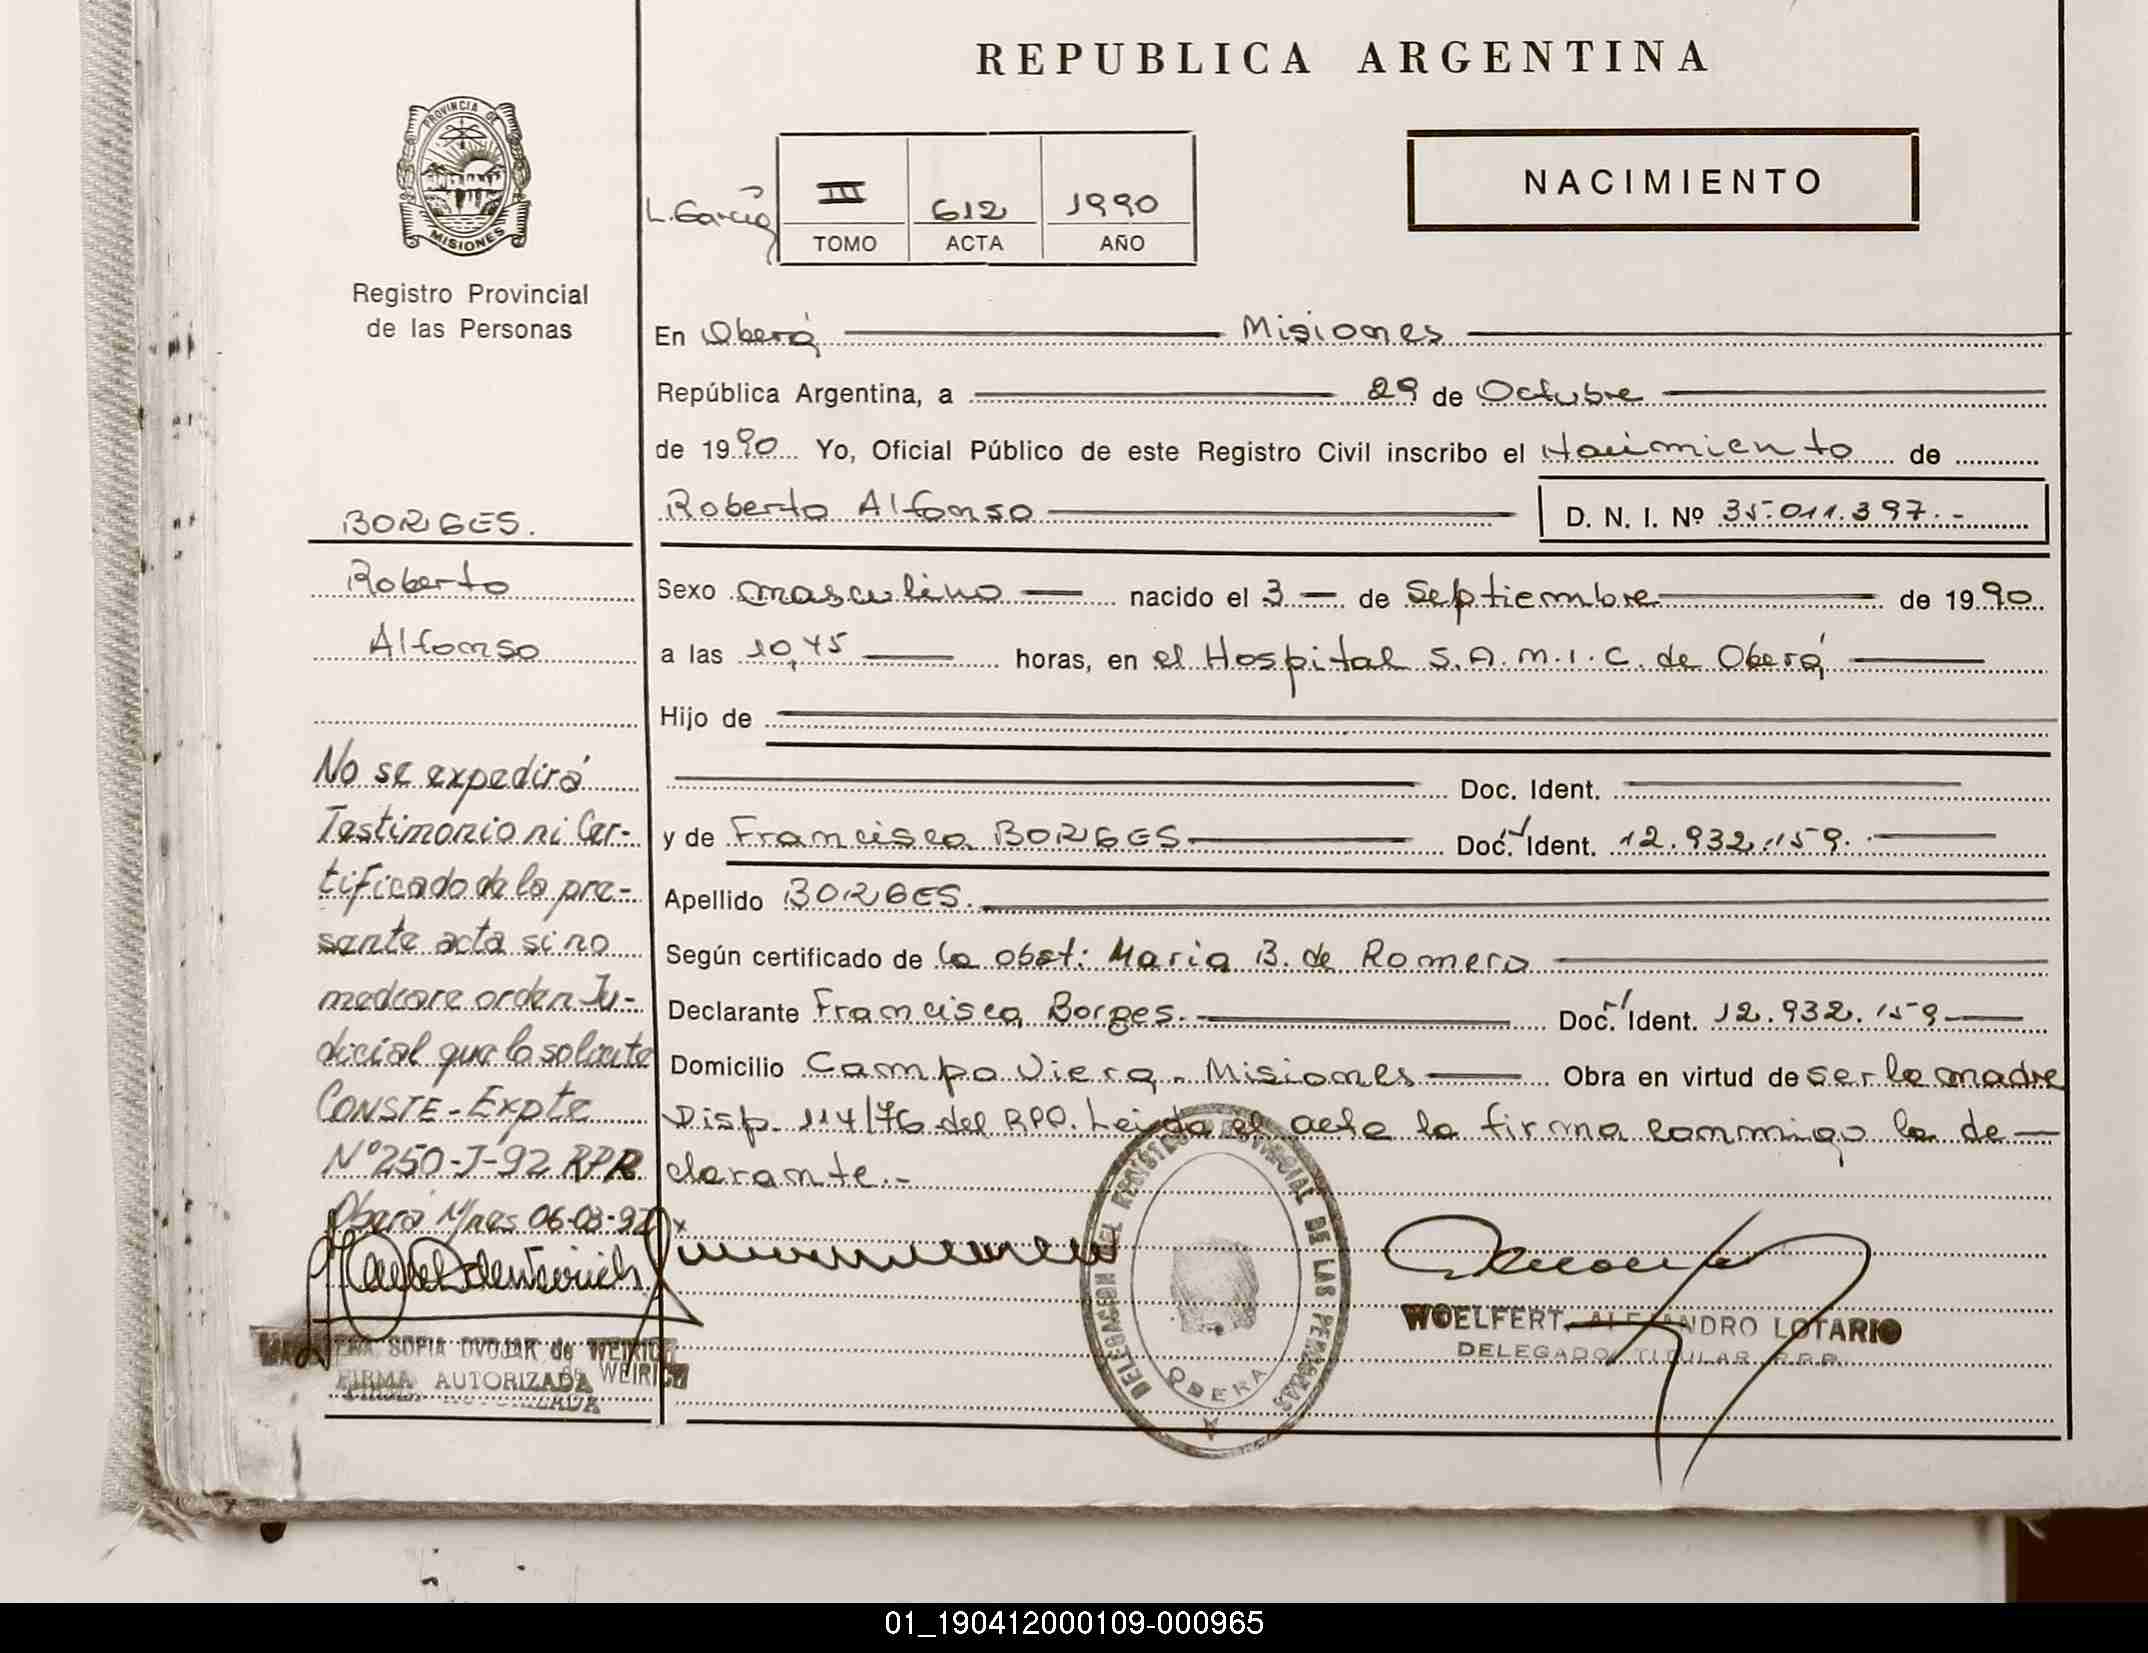 REPUBLICA ARGENTINA
PROVINCIA DE
MISIONES
Registro Provincial
de las Personas
L. García
III 612 1990
TOMO ACTA AÑO
NACIMIENTO
En Oberá Misiones
República Argentina, a 29 de Octubre
de 1990 Yo, Oficial Público de este Registro Civil inscribo el Nacimiento de
Roberto Alfonso D. N. I. Nº 35.011.397.-
Sexo masculino nacido el 3 de Septiembre de 1990
a las 10,45 horas, en el Hospital S.A.M.I.C. de Oberá
Hijo de
Doc. Ident.
y de Francisca BORGES Doc. Ident. 12.932.159.
Apellido BORGES.
Según certificado de la obst: Maria B. de Romero
Declarante Francisca Borges. Doc. Ident. 12.932.159
Domicilio Campo Viera - Misiones Obra en virtud de ser la madre
Disp. 114/76 del RPP. Leída el acta la firma conmigo la de-
clarante.-
BORGES.
Roberto
Alfonso
No se expedirá
Testimonio ni Cer-
tificado de la pre-
sente acta si no
mediare orden Ju-
dicial que lo solicite
CONSTE - Expte
Nº 250-J-92 RPP
Oberá Mnes 06-03-92
SOFIA DVOJAK de WEIRICH
FIRMA AUTORIZADA
DELEGACION DEL REGISTRO PROVINCIAL DE LAS PERSONAS
OBERA
WOELFERT ALEJANDRO LOTARIO
DELEGADO TITULAR R.P.P.
01_190412000109-000965